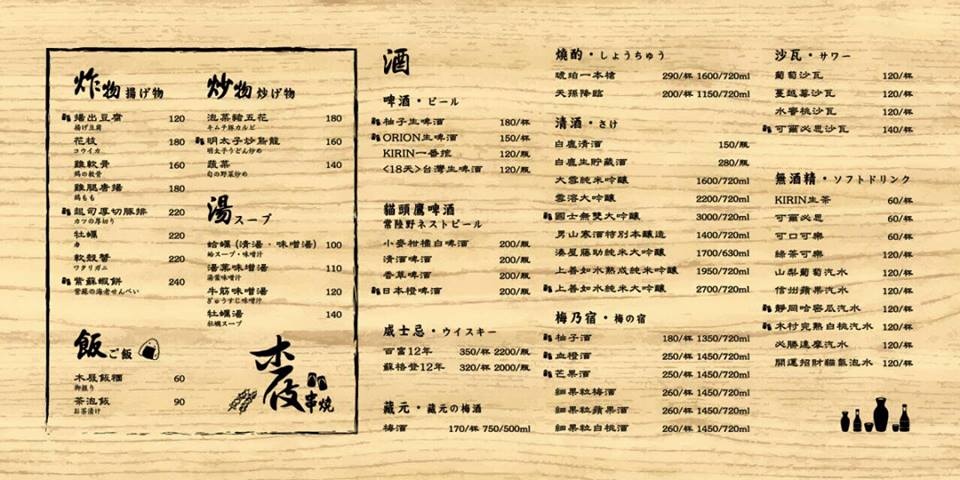 炸物 揚げ物
揚出豆腐 120
揚げ豆腐
花枝 180
コウイカ
雞軟骨 160
鶏の軟骨
雞腿唐揚 180
鶏もも
起司厚切豚排 220
カツの厚切り
牡蠣 220
カキ
軟殼蟹 220
ワタリガニ
紫蘇蝦餅 240
紫蘇の海老せんべい
飯 ご飯
木屐飯糰 60
御握り
茶泡飯 90
お茶漬け
炒物 炒げ物
泡菜豬五花 180
キムチ豚カルビ
明太子炒烏龍 160
明太子うどん炒め
蔬菜 140
旬の野菜炒め
湯 スープ
蛤蠣(清湯・味噌湯) 100
蛤スープ・味噌汁
湯葉味噌湯 110
湯葉味噌汁
牛筋味噌湯 120
ぎゅうすじ味噌汁
牡蠣湯 140
牡蠣スープ
木屐 串燒
酒
啤酒・ビール
柚子生啤酒 180/杯
ORION生啤酒 150/杯
KIRIN一番搾 120/瓶
<18天>台灣生啤酒 120/瓶
貓頭鷹啤酒
常陸野ネストビール
小麥柑橘白啤酒 200/瓶
清酒啤酒 200/瓶
香草啤酒 200/瓶
日本橙啤酒 200/瓶
威士忌・ウイスキー
百富12年 350/杯 2200/瓶
蘇格登12年 320/杯 2000/瓶
藏元・蔵元の梅酒
梅酒 170/杯 750/500ml
燒酌・しょうちゅう
琥珀一本槍 290/杯 1600/720ml
天孫降臨 200/杯 1150/720ml
清酒・さけ
白鹿清酒 150/瓶
白鹿生貯藏酒 280/瓶
大雪純米吟釀 1600/720ml
雪溶大吟釀 2200/720ml
國士無雙大吟釀 3000/720ml
男山寒酒特別本釀造 1400/720ml
湊屋藤助純米大吟釀 1700/630ml
上善如水熟成純米吟釀 1950/720ml
上善如水純米大吟釀 2700/720ml
梅乃宿・梅の宿
柚子酒 180/杯 1350/720ml
血橙酒 250/杯 1450/720ml
芒果酒 250/杯 1450/720ml
細果粒梅酒 260/杯 1450/720ml
細果粒蘋果酒 260/杯 1450/720ml
細果粒白桃酒 260/杯 1450/720ml
沙瓦・サワー
葡萄沙瓦 120/杯
蔓越莓沙瓦 120/杯
水蜜桃沙瓦 120/杯
可爾必思沙瓦 140/杯
無酒精・ソフトドリンク
KIRIN生茶 60/杯
可爾必思 60/杯
可口可樂 60/杯
綠茶可樂 120/杯
山梨葡萄汽水 120/杯
信州蘋果汽水 120/杯
靜岡哈密瓜汽水 120/杯
木村完熟白桃汽水 120/杯
必勝達摩汽水 120/杯
開運招財貓氣泡水 120/杯